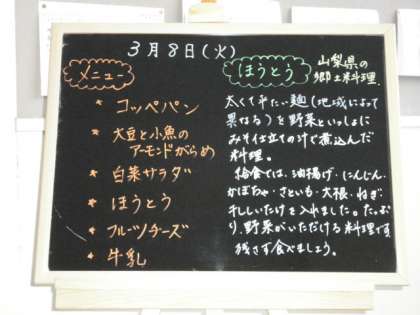 3月8日(火)
メニュー
* コッペパン
* 大豆と小魚の
アーモンドがらめ
* 白菜サラダ
* ほうとう
* フルーツチーズ
* 牛乳
ほうとう
山梨県の
郷土料理
太くて平たい麺(地域によって
異なる)を野菜といっしょに
みそ仕立ての汁で煮込んだ
料理。
給食では、油揚げ・にんじん・
かぼちゃ・さといも・大根・ねぎ・
干ししいたけを入れました。たっぷ
り、野菜がいただける料理です。
残さず食べましょう。